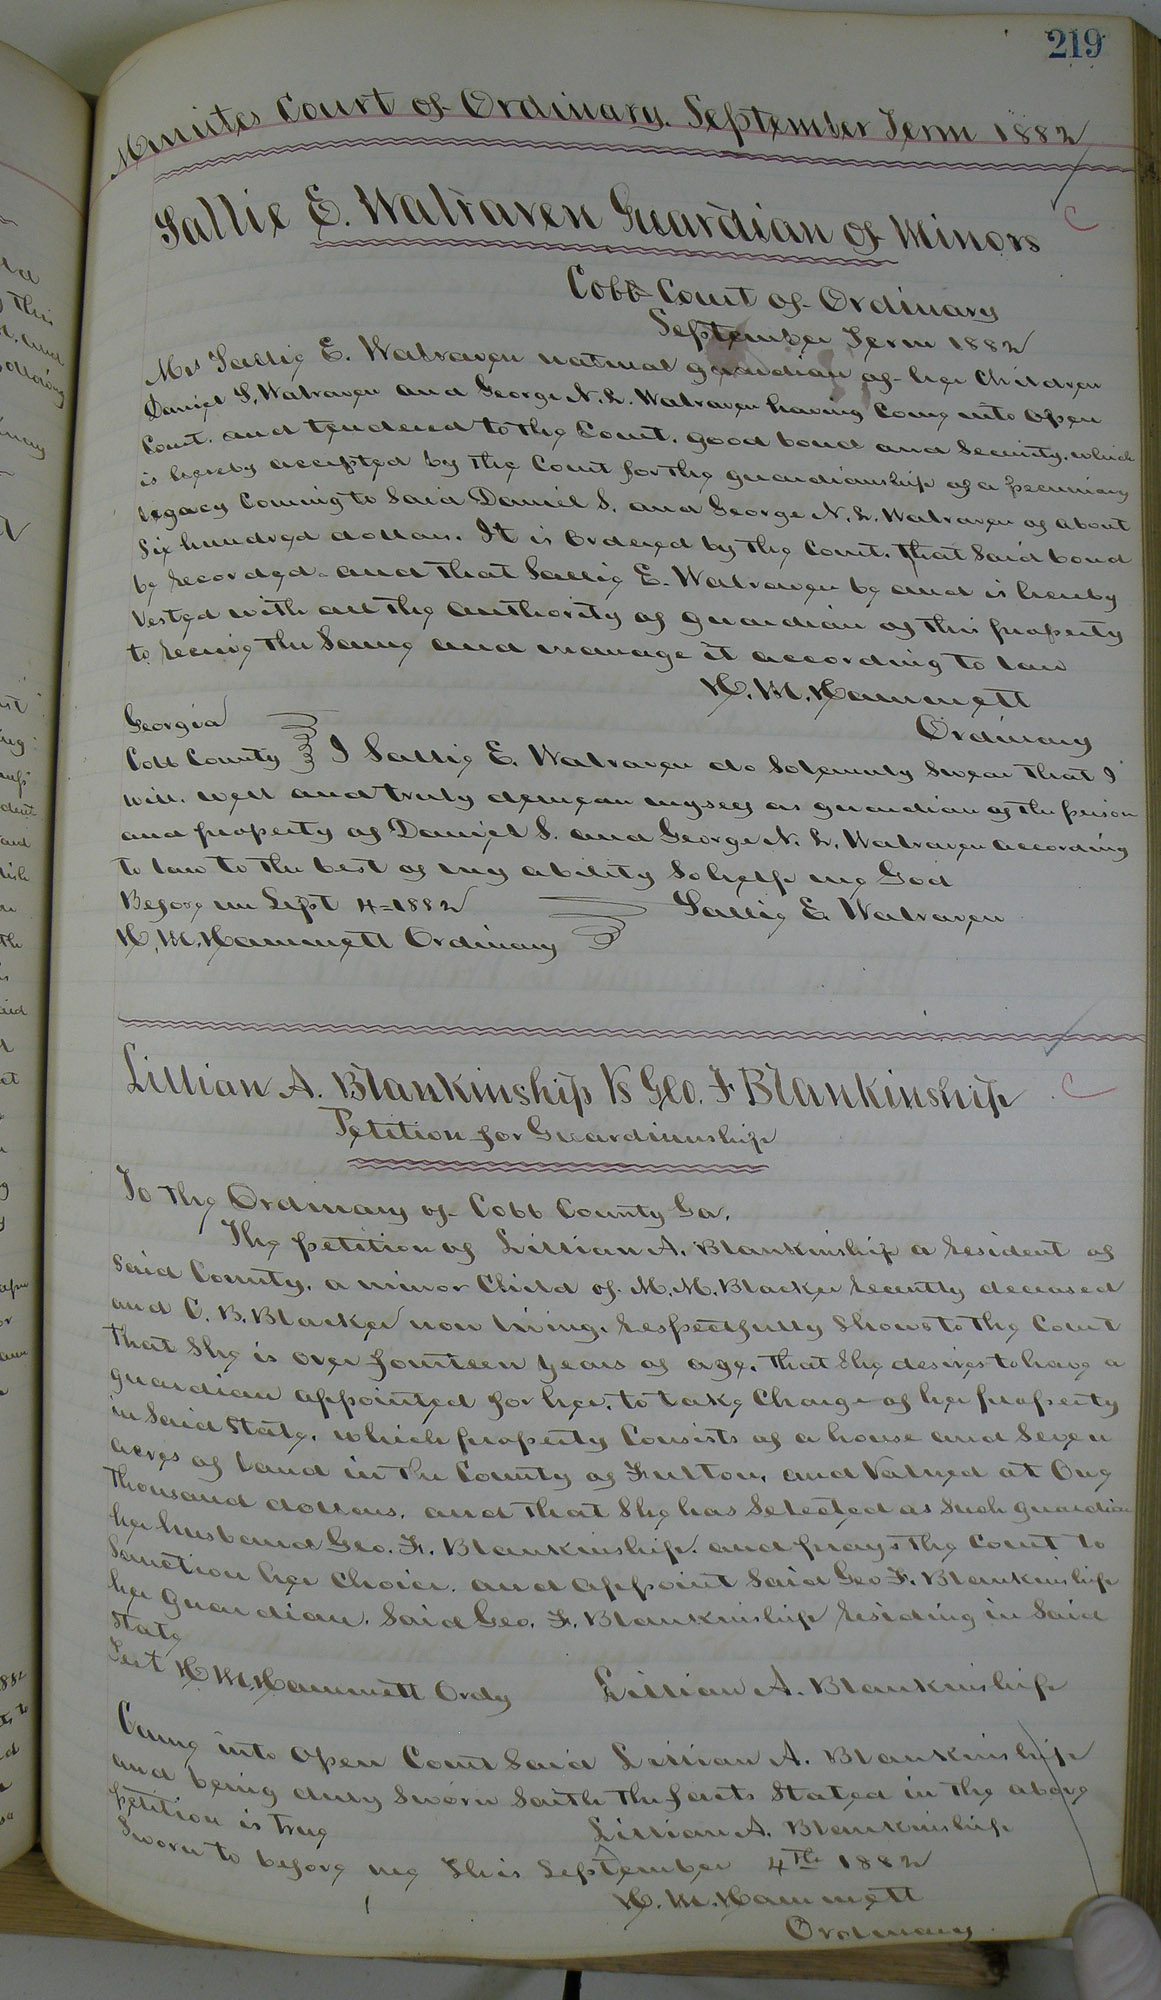 219
Minutes Court of Ordinary. September Term 1882
Sallie E. Walraven Guardian of Minors
C
Cobb Court of Ordinary
September Term 1882
Mrs Sallie E. Walraven natural guardian of her Children
Daniel S. Walraven and George N. L. Walraven having Come into open
Court. and tendered to the Court. good bond and Security. which
is hereby accepted by the Court for the guardianship of a pecuniary
legacy Coming to Said Daniel S. and George N. L. Walraven of about
Six hundred dollars. It is Ordered by the Court. that Said bond
be recorded. and that Sallie E. Walraven be and is hereby
Vested with all the authority of guardian of this property
to receive the Same and manage it according to law
H. M. Hammett
Ordinary
Georgia
Cobb County I Sallie E. Walraven do Solemnly Swear that I
will. well and truly demean myself as guardian of the person
and property of Daniel S. and George N. L. Walraven according
to law to the best of my ability So help me God
Before me Sept 4=1882 Sallie E. Walraven
H. M. Hammett Ordinary
Lillian A. Blankinship Vs Geo. F Blankinship
C
Petition for Guardianship
To the Ordinary of Cobb County Ga.
The petition of Lillian A. Blankinship a resident of
Said County. a minor Child of M. M. Blacker recently deceased
and C. B. Blacker now living. respectfully Shows to the Court
that She is over fourteen years of age. that She desires to have a
guardian appointed for her. to take Charge of her property
in Said State. which property Consists of a house and Seven
acres of land in the County of Fulton. and Valued at One
thousand dollars. and that She has Selected as Such guardian
her husband Geo. F. Blankinship. and prays the Court to
Sanction her Choice. and appoint Said Geo F. Blankinship
her guardian. Said Geo. F. Blankinship residing in Said
State
Test H M. Hammett Ordy Lillian A. Blankinship
Came into Open Court Said Lillian A. Blankinship
and being duly Sworn Saith the facts Stated in the above
petition is true
Lillian A. Blankinship
Sworn to before me this September 4th 1882
H. M. Hammett
Ordinary